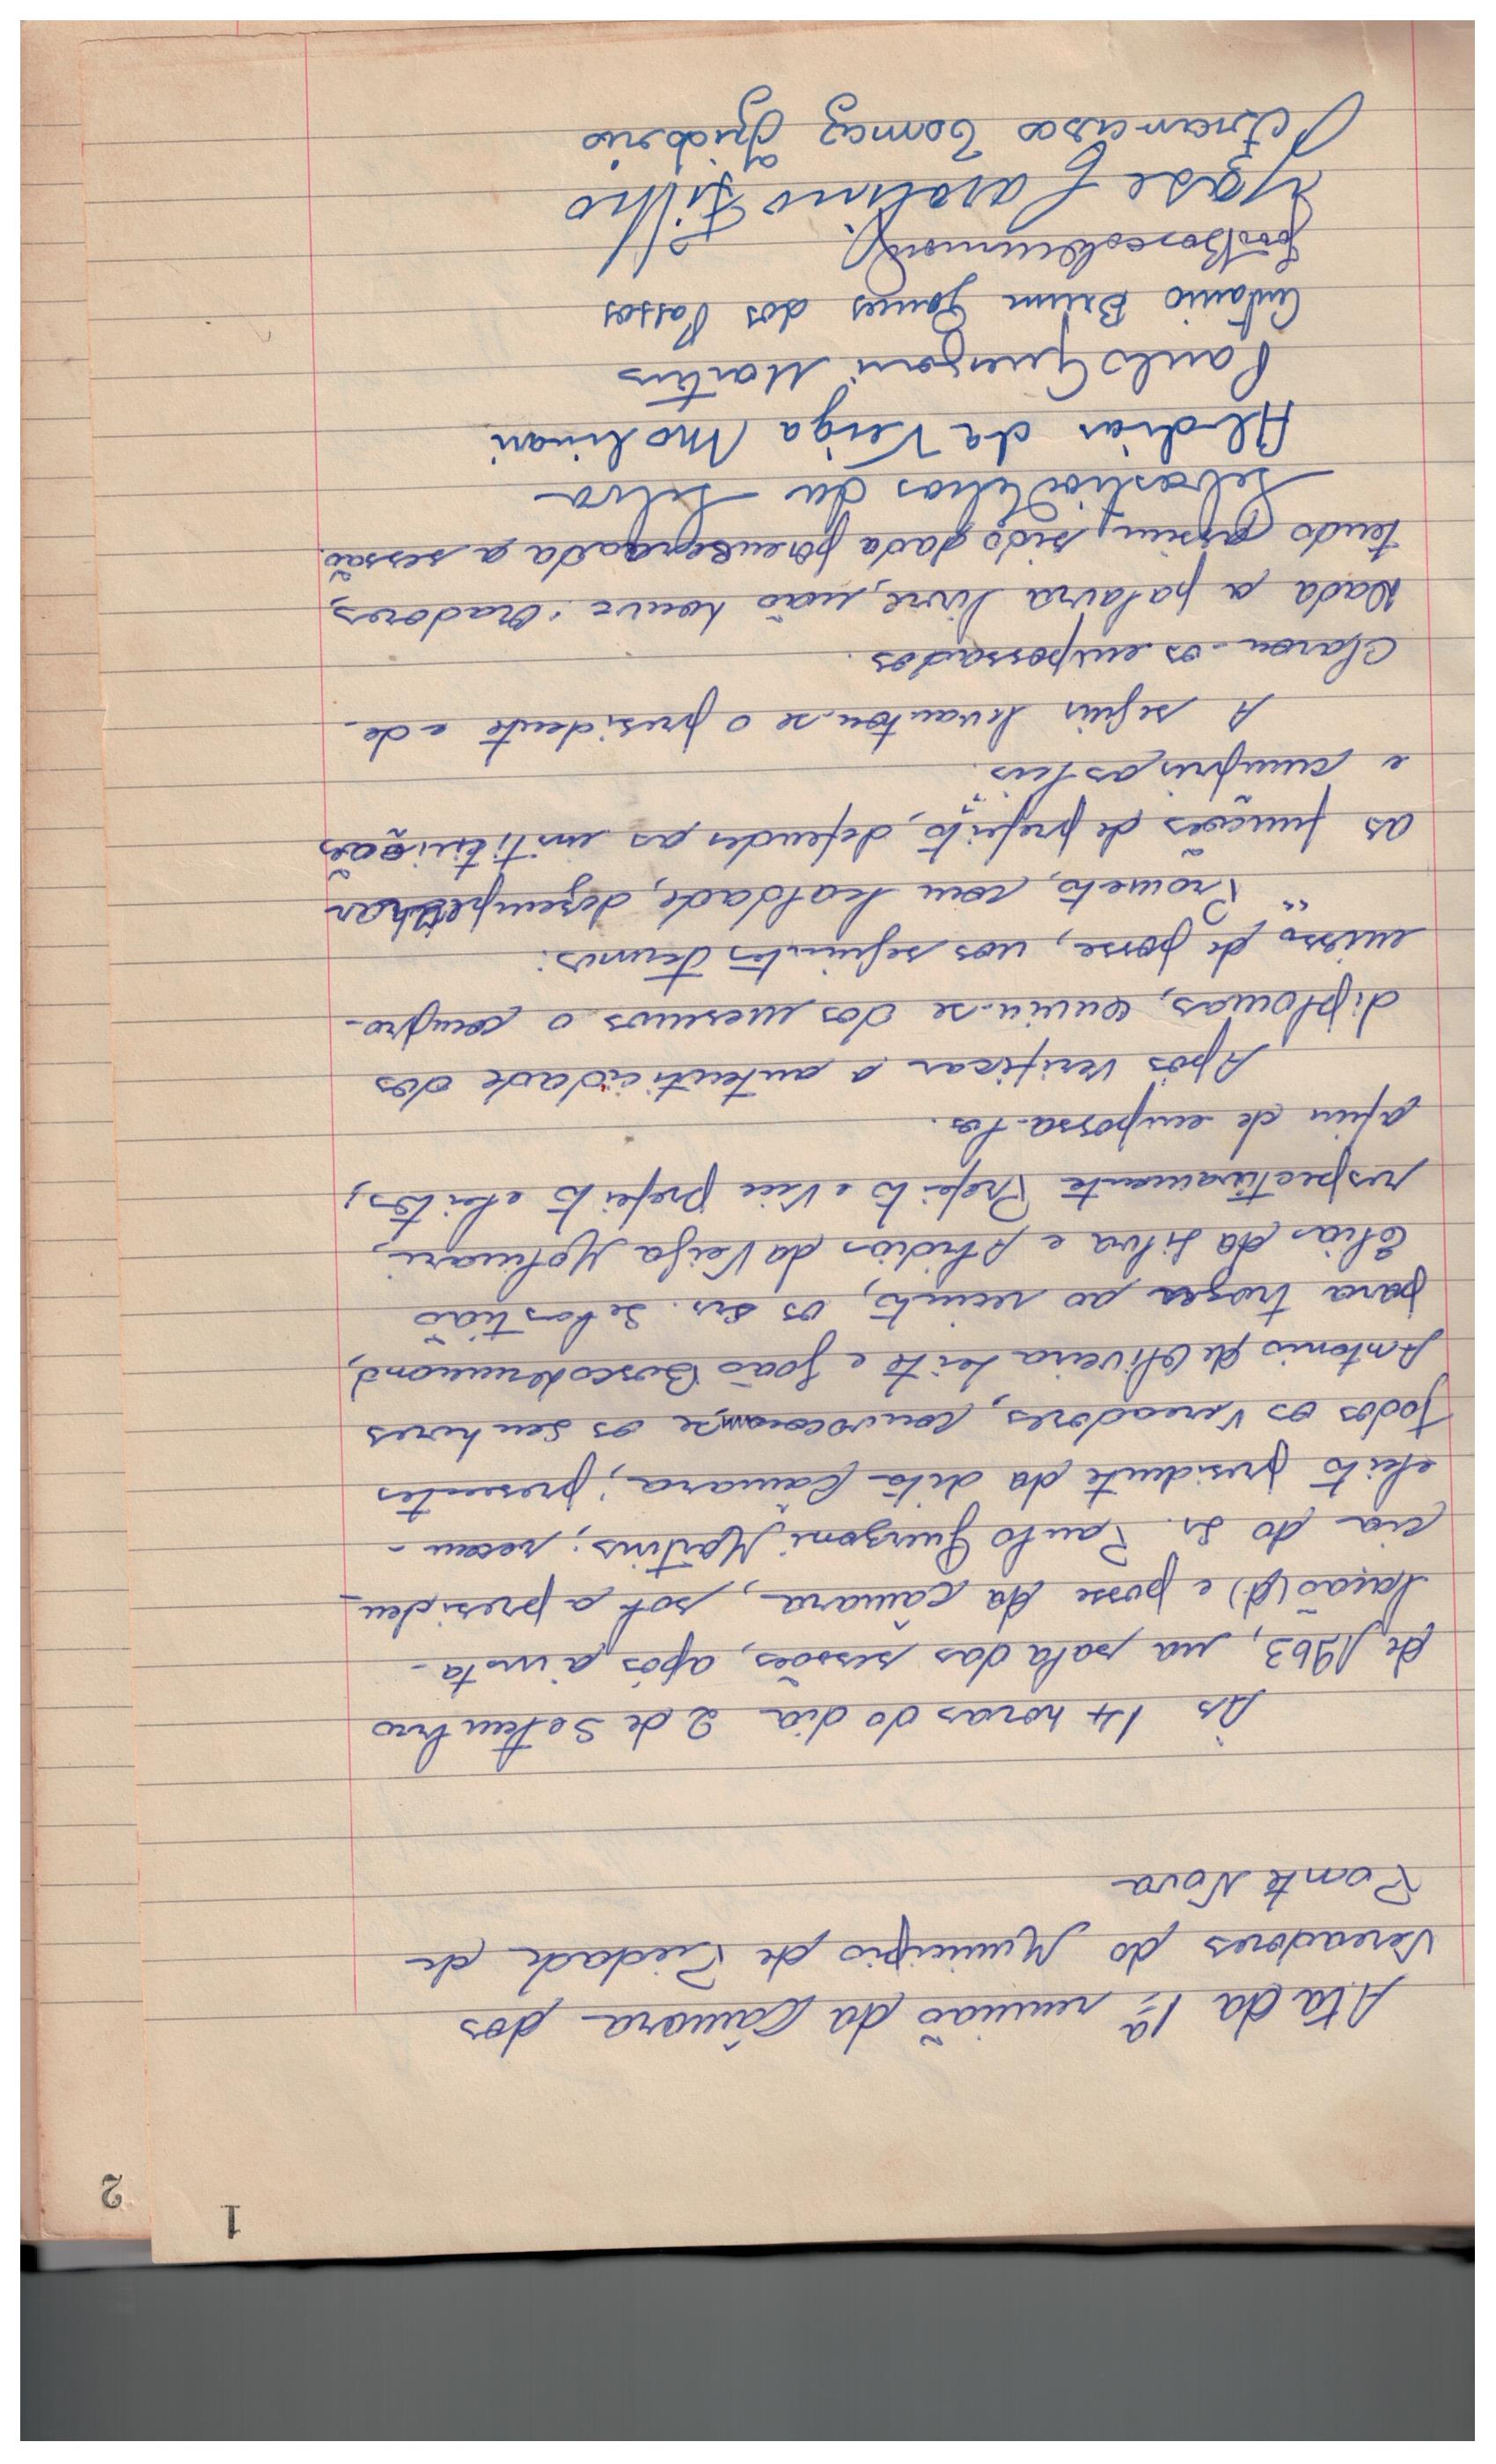 1
2
Ata da 1ª reunião da Câmara dos
Vereadores do Municipio de Piedade de
Ponte Nova
Às 14 horas do dia 2 de Setembro
de 1963, na sala das sessões, após a insta-
lação (d) e posse da câmara, sob a presiden-
cia do Sr. Paulo Guerzoni Martins; recem-
eleito presidente da dita Câmara; presentes
todos os Vereadores, convocaram-se os senhores
Antonio de Oliveira Leite e João Bosco Drumond,
para trazer ao recinto, os srs. Sebastião
Elias da Silva e Aldias da Veiga Molinari,
respectivamente Prefeito e Vice prefeito eleitos,
afim de empossa-los.
Após verificar a autenticidade dos
diplomas, ouviu-se dos mesmos o compro-
misso de posse, nos seguintes termos:
"Prometo, com lealdade, dezempenhar
as funções de prefeito, defender as instituições
e cumprir as leis".
A seguir levantou-se o presidente e de-
clarou-os empossados.
Dada a palavra livre, não houve oradores,
tendo assim, sido dada por encerrada a sessão.
Sebastião Elias da Silva
Aldias da Veiga Molinari
Paulo Guerzoni Martins
Antonio Brum Gomes dos Passos
João Bosco Drumond
José Carolino Filho
Francisco Tomaz